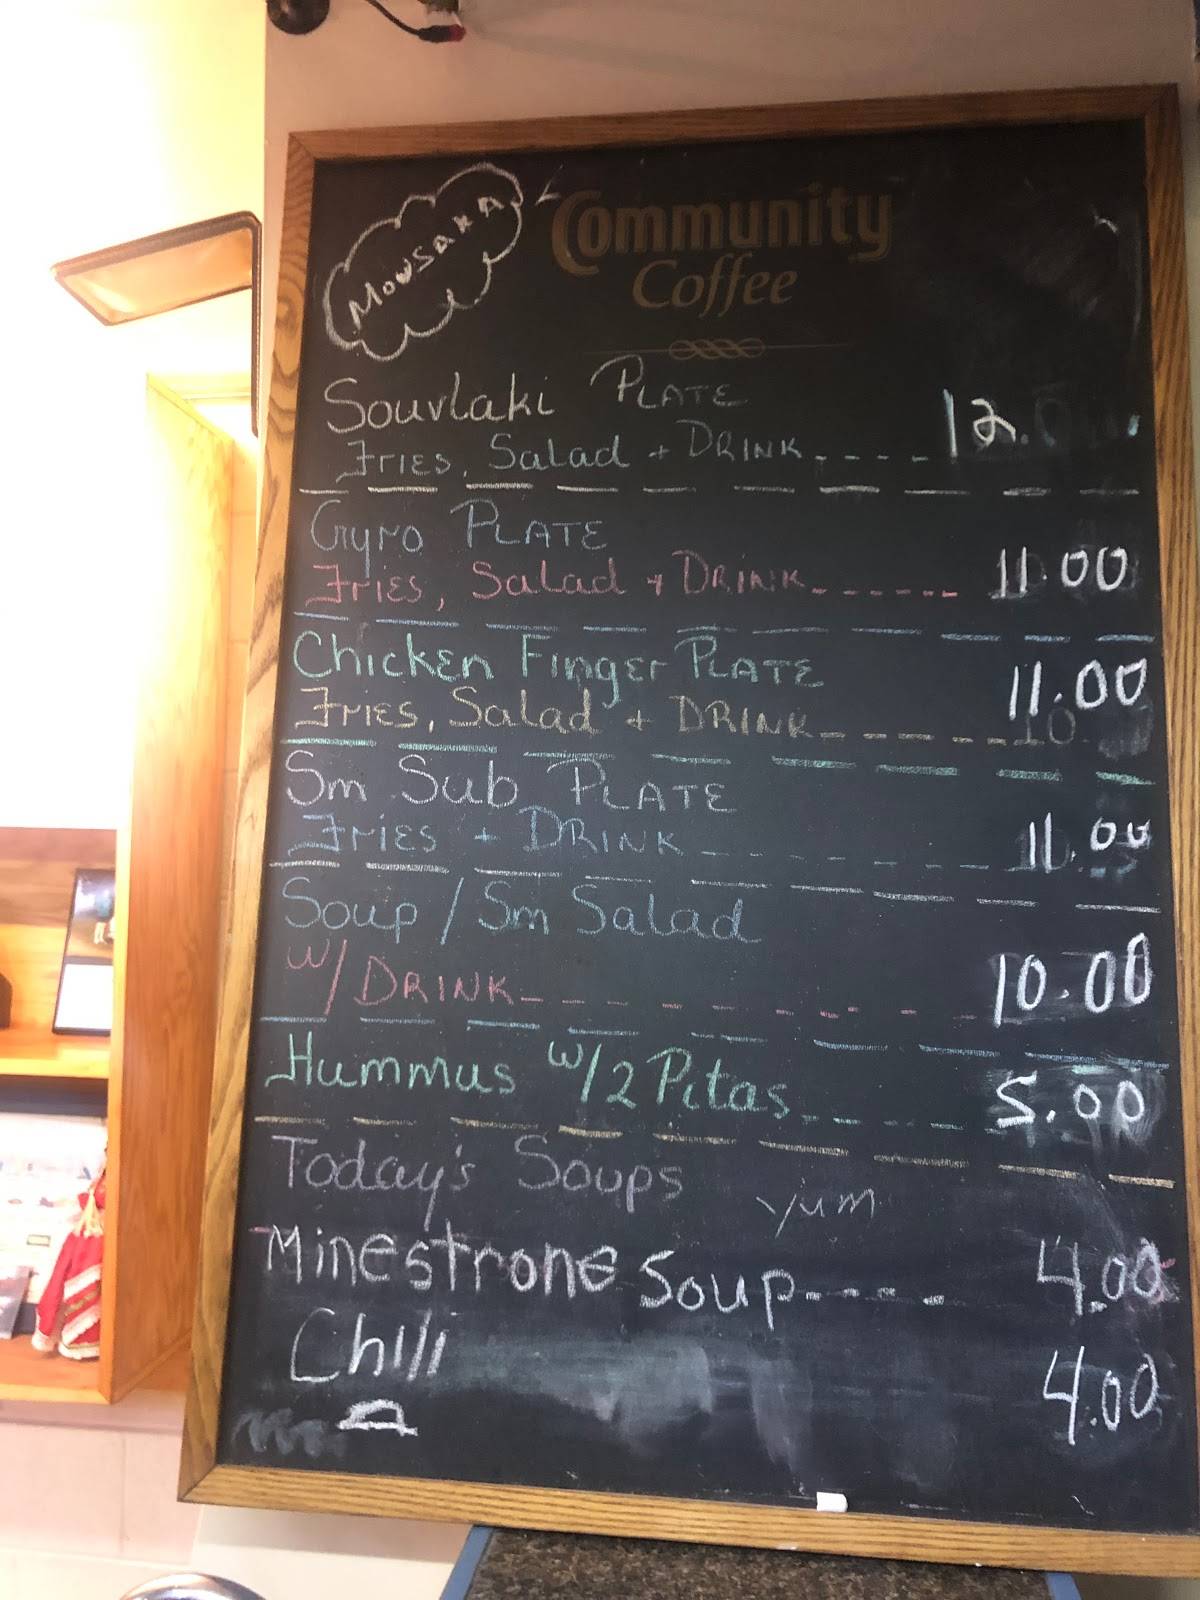 MOUSAKA
Community
Coffee
Souvlaki PLATE
Fries, Salad + DRINK 12.
Gyro PLATE
Fries, Salad + DRINK 11.00
Chicken Finger PLATE 11.00
Fries, Salad + DRINK
Sm Sub PLATE
Fries + DRINK 11.00
Soup / Sm Salad
w/ DRINK 10.00
Hummus w/ 2 Pitas 5.00
Today's Soups yum
Minestrone Soup 4.00
Chili 4.00